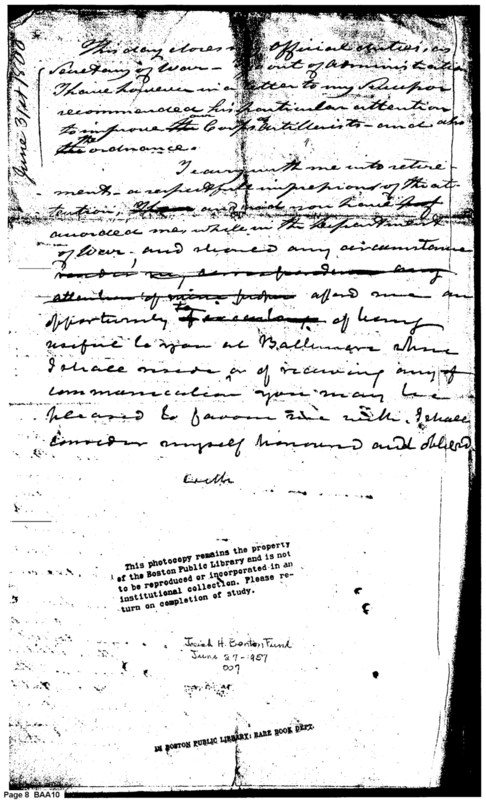 June 3[1st] 1800
This day closes my official duties as
Secretary of War – out of Administration
I have however in a letter to my Successor
recommended his particular attention
to improve the Corps Artillerists – and also
the ordnance.
I carry with me into retire-
ments – a respectful impressions of the at-
tention, and aid you have
awarded me, while in the Department
of War, and should any circumstance
render my correspondence any
attention of mine afford me an
opportunity to of being
useful to you at Baltimore where
I shall reside or of receiving any
communication you may be
pleased to favour me with. I shall
consider myself honoured and obliged
This photocopy remains the property
of the Boston Public Library and is not
to be reproduced or incorporated in an
institutional collection. Please re-
turn on completion of study.
Josiah H. Benton Fund
June 27 - 1957
007
IN BOSTON PUBLIC LIBRARY: RARE BOOK DEPT.
Page 8 BAA10